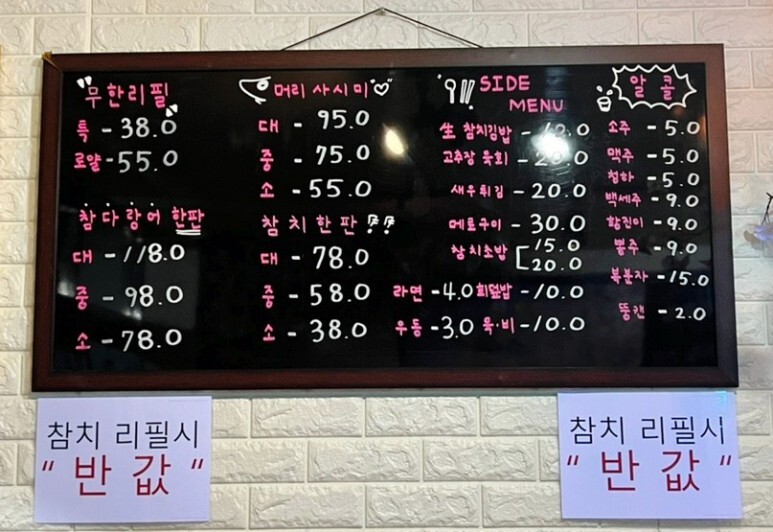 무한리필
특 - 38.0
로얄 - 55.0
참다랑어 한판
대 - 118.0
중 - 98.0
소 - 78.0
머리 사시미
대 - 95.0
중 - 75.0
소 - 55.0
참치한판!!
대 - 78.0
중 - 58.0
소 - 38.0
SIDE
MENU
生 참치김밥 - 12.0
고추장 육회 - 20.0
새우튀김 - 20.0
메로구이 - 30.0
참치초밥 [ 15.0
20.0
라면 - 4.0 회덮밥 - 10.0
우동 - 3.0 육·비 - 10.0
알콜
소주 - 5.0
맥주 - 5.0
청하 - 5.0
백세주 - 9.0
황진이 - 9.0
뽕주 - 9.0
복분자 - 15.0
뚱캔 - 2.0
참치 리필시
" 반 값 "
참치 리필시
" 반 값 "